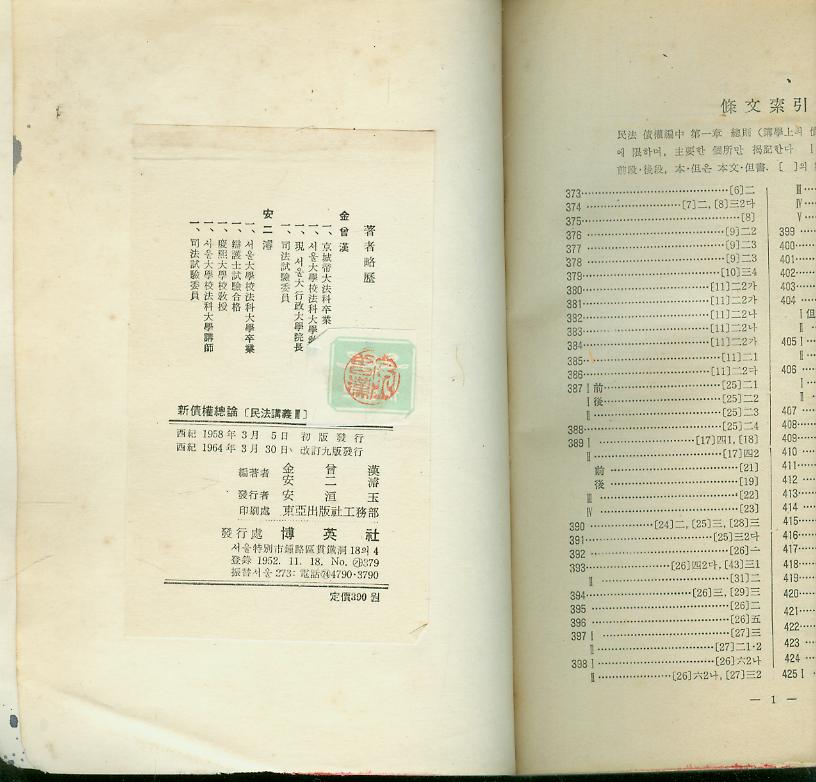 著者略歷
金曾漢
一、京城帝大法科卒業
一、서울大學校法科大學
一、現 서울大 行政大學院長
一、司法試驗委員
安二濬
一、서울大學校法科大學卒業
一、辯護士試驗合格
一、慶熙大學校敎授
一、서울大學校法科大學講師
一、司法試驗委員
新債權總論〔民法講義Ⅲ〕
西紀 1958年 3月 5日 初版發行
西紀 1964年 3月 30日 改訂九版發行
編著者 金曾漢
安二濬
發行者 安洹玉
印刷處 東亞出版社工務部
發行處 博英社
서울特別市鍾路區貫鐵洞 18의 4
登錄 1952. 11. 18. No. ㉑379
振替서울 273; 電話㉔4790·3790
定價390원
條文索引
民法 債權編中 第一章 總則 (講學上의
에 限하며, 主要한 個所만 揭記한다
前段·後段, 本·但은 本文·但書. [ ]의
373 [6]二
374 [7]二, [8]三2다
375 [8]
376 [9]二2
377 [9]二3
378 [9]二3
379 [10]三4
380 [11]二2가
381 [11]二2가
382 [11]二2나
383 [11]二2나
384 [11]二2가
385 [11]二1
386 [11]二2다
387 Ⅰ前 [25]二1
Ⅰ後 [25]二2
Ⅱ [25]二3
388 [25]二4
389 Ⅰ [17]四1, [18]
Ⅱ [17]四2
前 [21]
後 [19]
Ⅲ [22]
Ⅳ [23]
390 [24]二, [25]三, [28]三
391 [25]三2다
392 [26]一
393 [26]四2다, [43]三1
Ⅱ [31]二
394 [26]三, [29]三
395 [26]二
396 [26]五
397 Ⅰ [27]三
Ⅱ [27]二1·2
398 Ⅰ [26]六2나
Ⅱ [26]六2나, [27]三2
Ⅲ
Ⅳ
Ⅴ
399
400
401
402
403
404
Ⅰ但
Ⅱ
405 Ⅰ
Ⅱ
406
Ⅰ
Ⅱ
407
408
409
410
411
412
413
414
415
416
417
418
419
420
421
422
423
424
425 Ⅰ
— 1 —